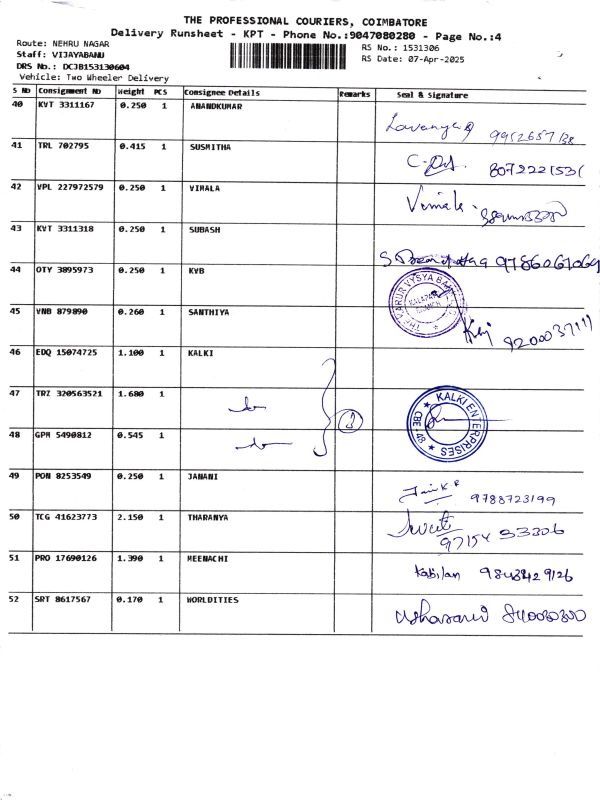 THE PROFESSIONAL COURIERS, COIMBATORE
Delivery Runsheet - KPT - Phone No.:9047080280 - Page No.:4
Route: NEHRU NAGAR
RS No.: 1531306
Staff: VIJAYABANU
RS Date: 07-Apr-2025
DRS No.: DCJB153130604
Vehicle: Two Wheeler Delivery
S No Consignment No Weight PCS Consignee Details Remarks Seal & Signature
40 KVT 3311167 0.250 1 ANANDKUMAR
Lavanya
41 TRL 702795 0.415 1 SUSMITHA
8072221531
42 VPL 227972579 0.250 1 VIMALA Vimala
43 KVT 3311318 0.250 1 SUBASH
9786061069
44 OTY 3895973 0.250 1 KVB
THE KARUR VYSYA BANK
45 VNB 879890 0.260 1 SANTHIYA
9200037111
46 EDQ 15074725 1.100 1 KALKI
47 TRZ 320563521 1.680 1
3
KALKI ENTERPRISES
CBE-48
48 GPM 5490812 0.545 1
49 PON 8253549 0.250 1 JANANI
9788723199
50 TCG 41623773 2.150 1 THARANYA
97154 33306
51 PRO 17690126 1.390 1 MEENACHI
Kabilan 9843429126
52 SRT 8617567 0.170 1 WORLDITIES